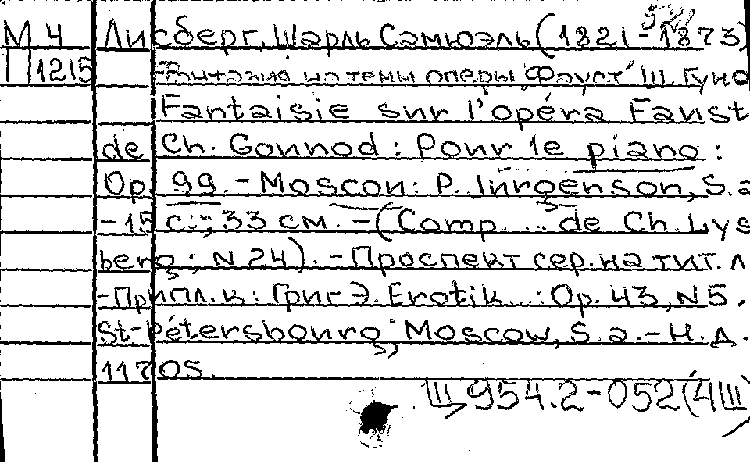 М 4 Лисберг, Шарль Самюэль (1821-1873)
П 1215 Фантазия на темы оперы "Фауст" Ш. Гуно
Fantaisie sur l'opéra Faust
de Ch. Gounod : Pour le piano :
Op. 99. - Moscou : P. Jurgenson, S.a
- 15 с.; 33 см. - (Comp. ... de Ch. Lys
berg ; N 24). - Проспект сер. на тит. л
- Припл. к : Григ Э. Erotik... : Op. 43, N 5.
St-Pétersbourg ; Moscow, S.a. - Н.д.
11705.
Щ 954.2-052(4Ш)